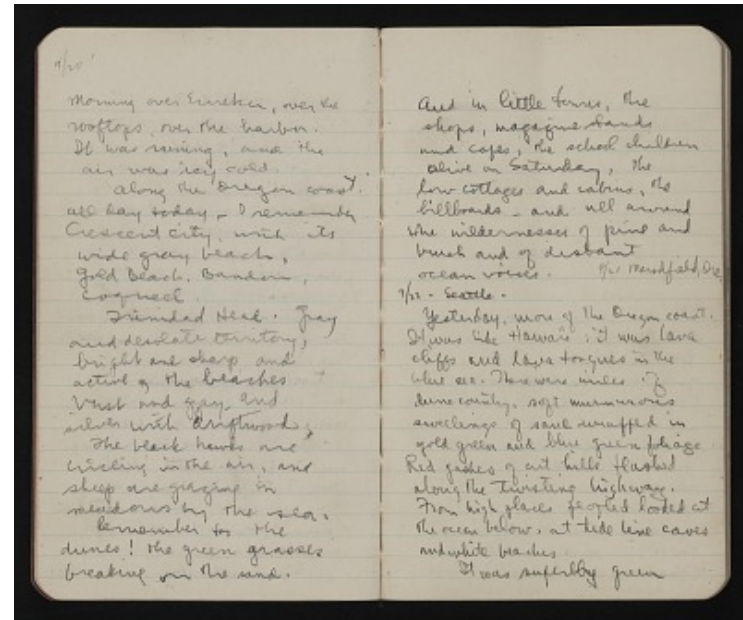 9/20
Morning over Eureka, over the
rooftops, over the harbor.
It was raining, and the
air was icy cold.
Along the Oregon coast.
all day today - I remember
Crescent City, with its
wide gray beach,
Gold Beach. Bandon,
Coquell
Trinidad Head. Gray
and desolate territory,
bright are sharp and
active of the beaches
Vast and gray, and
silver with driftwood,
The black hawks are
circling in the air, and
sheep are grazing in
meadows by the sea.
Remember too the
dunes! the green grasses
breaking on the sand.
And in little towns, the
shops, magazine stands
and cafes, the school children
alive on Saturday, the
low cottages and cabins, the
billboards - and all around
the wildernesses of pine and
brush and of distant
ocean voices. 9/21 Marshfield, Ore.
9/22 - Seattle -
Yesterday, more of the Oregon coast.
It was like Hawaii: it was lava
cliffs and lava tongues in the
blue sea. There were miles of
dune country, soft murmurous
swellings of sand wrapped in
gold green and blue green foliage
Red gashes of cut hills flashed
along the twisting highway.
From high places people looked at
the ocean below, at tide line caves
and white beaches
It was superbly green